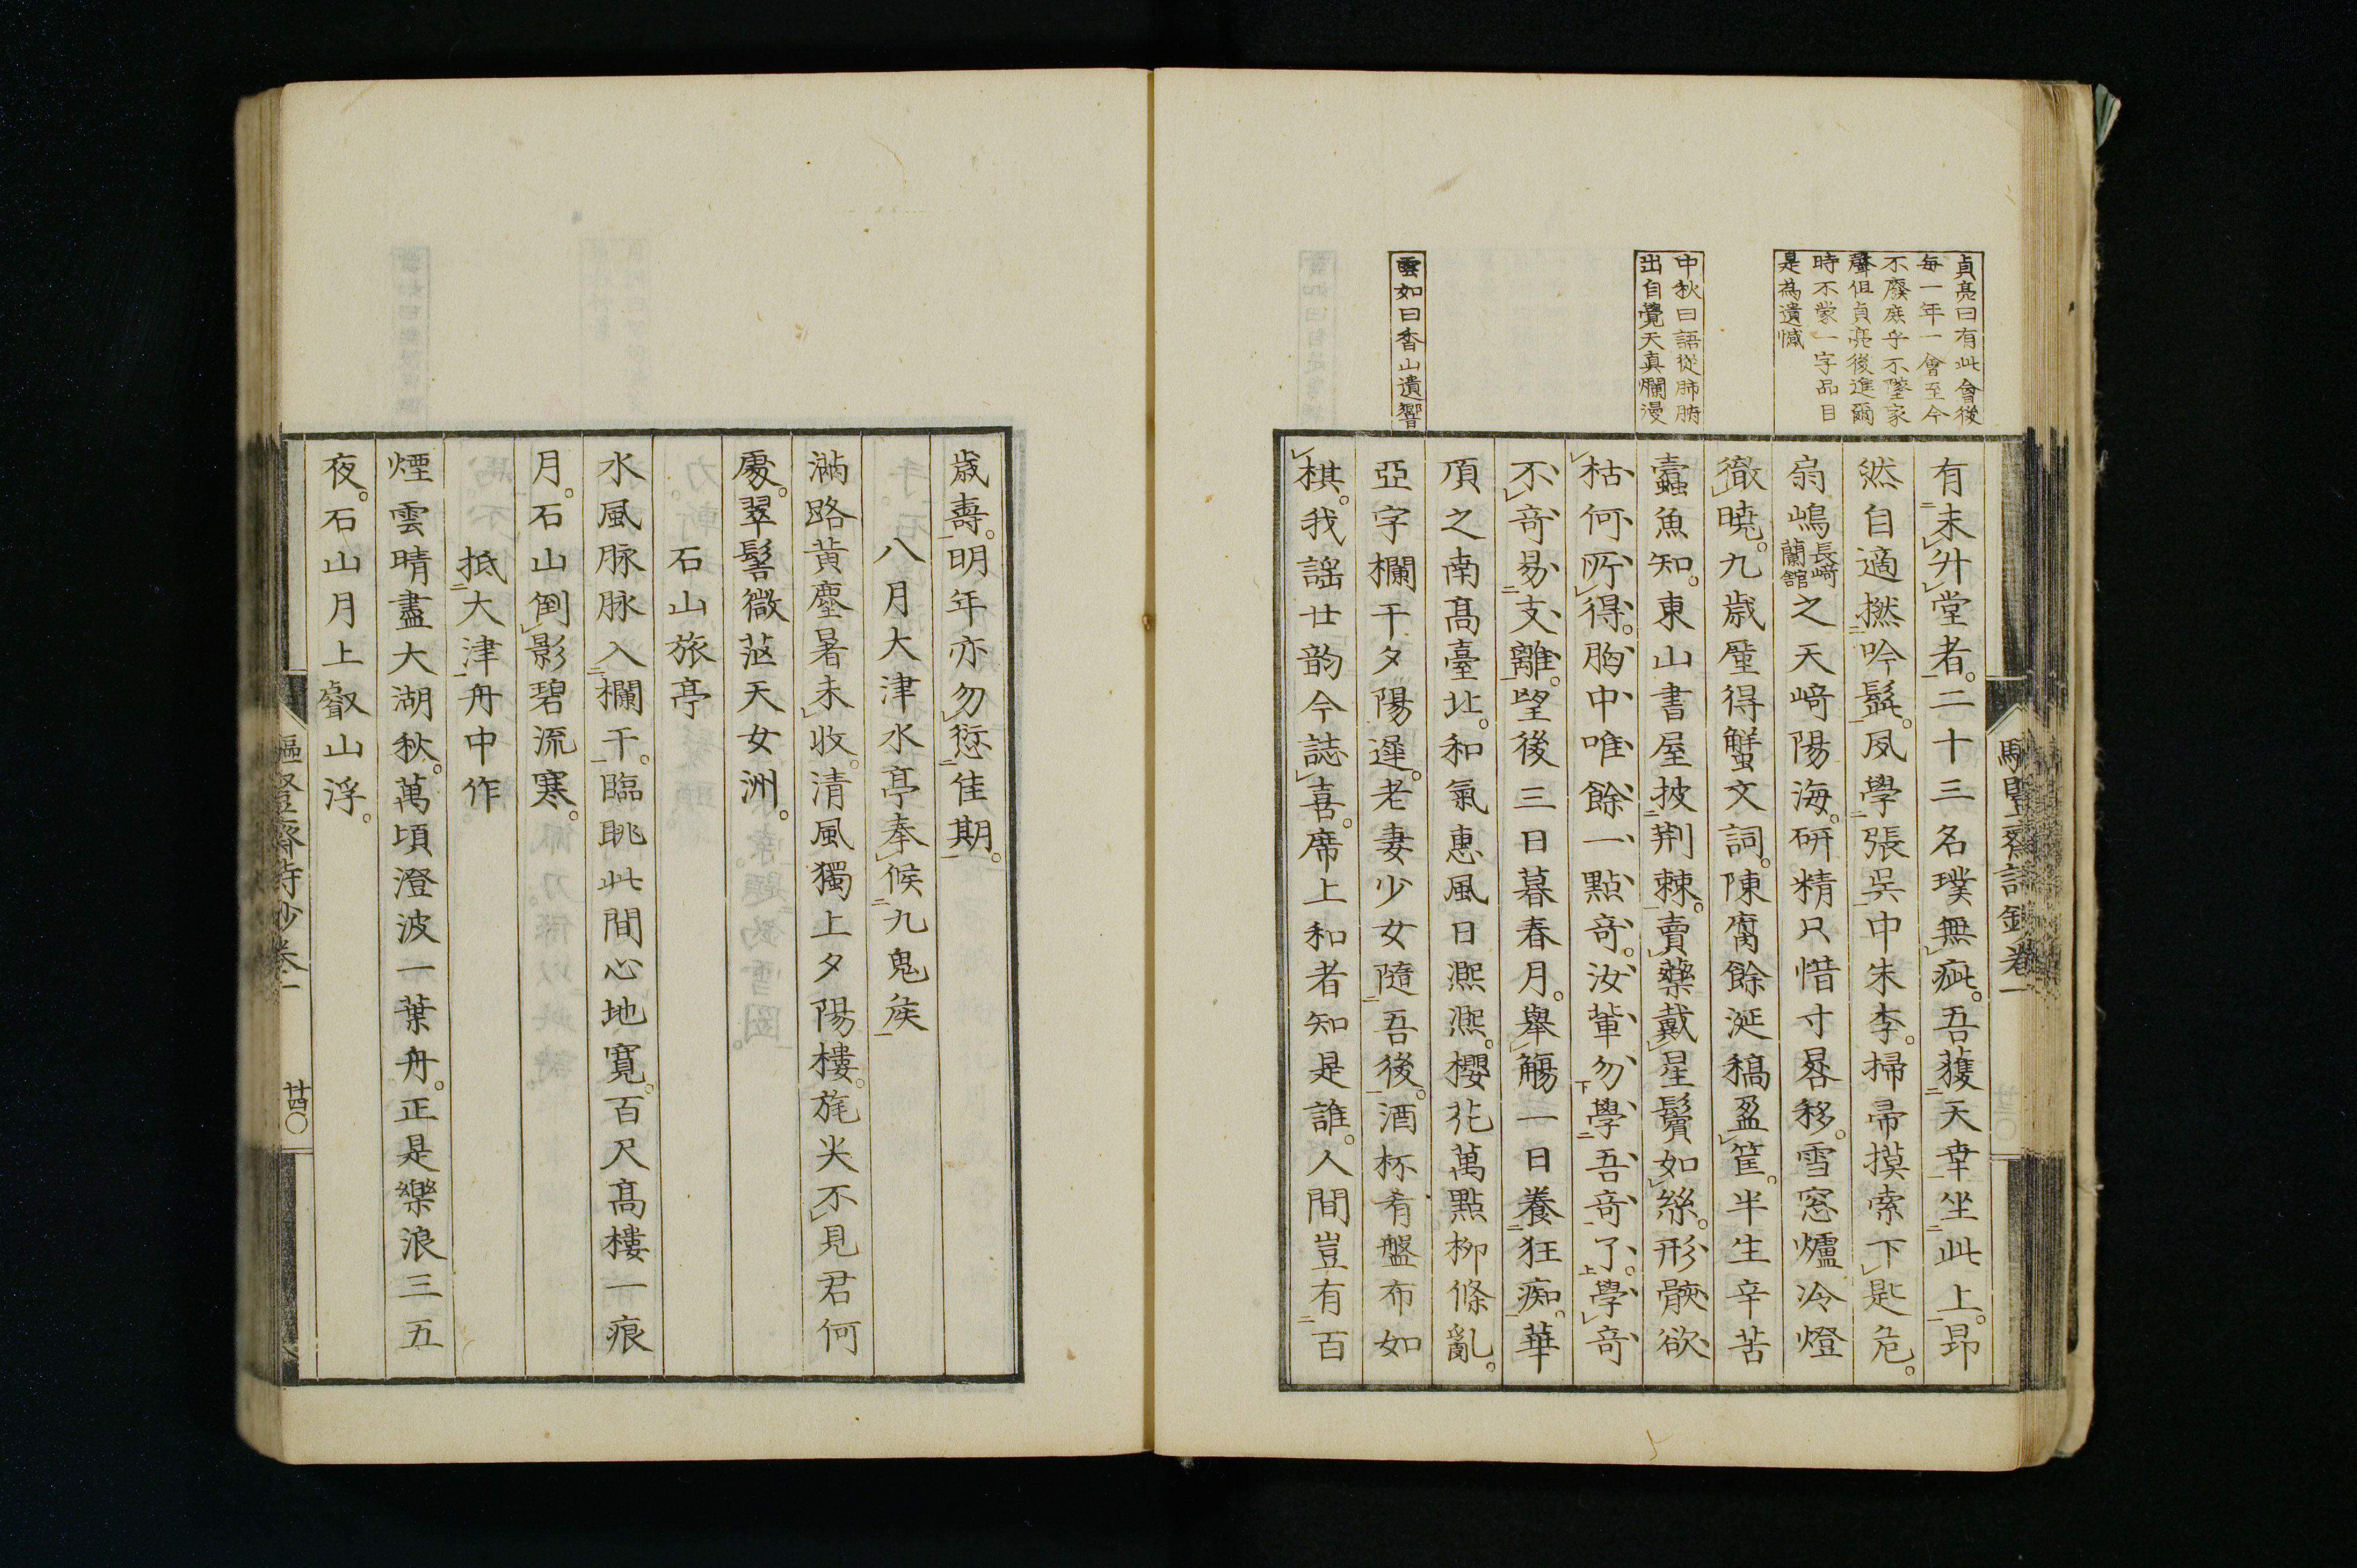 貞亮曰有此會後
每一年一會至今
不廢庶乎不墜家
聲但貞亮後進爾
時不蒙一字品目
是為遺憾
中秋曰語從肺腑
出自覺天真爛漫
雲如曰香山遺響
有未升堂者。二十三名璞無疵。吾獲天幸坐此上。昂
然自適撚吟髭。夙學張吳中朱李。掃帚摸索下匙危。
扇嶋長﨑蘭館之天﨑陽海。研精只惜寸晷移。雪窓爐冷燈
徹曉。九歳厪得蟹文詞。陳腐餘涎稿盈筐。半生辛苦
蠹魚知。東山書屋披荆棘。賣藥戴星鬢如絲。形骸欲
枯何所得。胸中唯餘一點奇。汝輩勿學吾奇了。學奇
不奇易支離。望後三日暮春月。舉觴一日養狂痴。華
頂之南髙臺北。和氣惠風日凞凞。櫻花萬點柳條亂。
亞字欄干夕陽遲。老妻少女隨吾後。酒杯肴盤布如
棋。我謡廿韵今誌喜。席上和者知是誰。人間豈有百
歳壽。明年亦勿愆佳期。
八月大津水亭奉候九鬼矦
滿路黃塵暑未收。清風獨上夕陽樓。旄尖不見君何
處。翠髻微茫天女洲。
石山旅亭
水風脉脉入欄干。臨眺此間心地寬。百尺髙樓一痕
月。石山倒影碧流寒。
抵大津舟中作
煙雲晴盡大湖秋。萬頃澄波一葉舟。正是樂浪三五
夜。石山月上叡山浮。
廿四